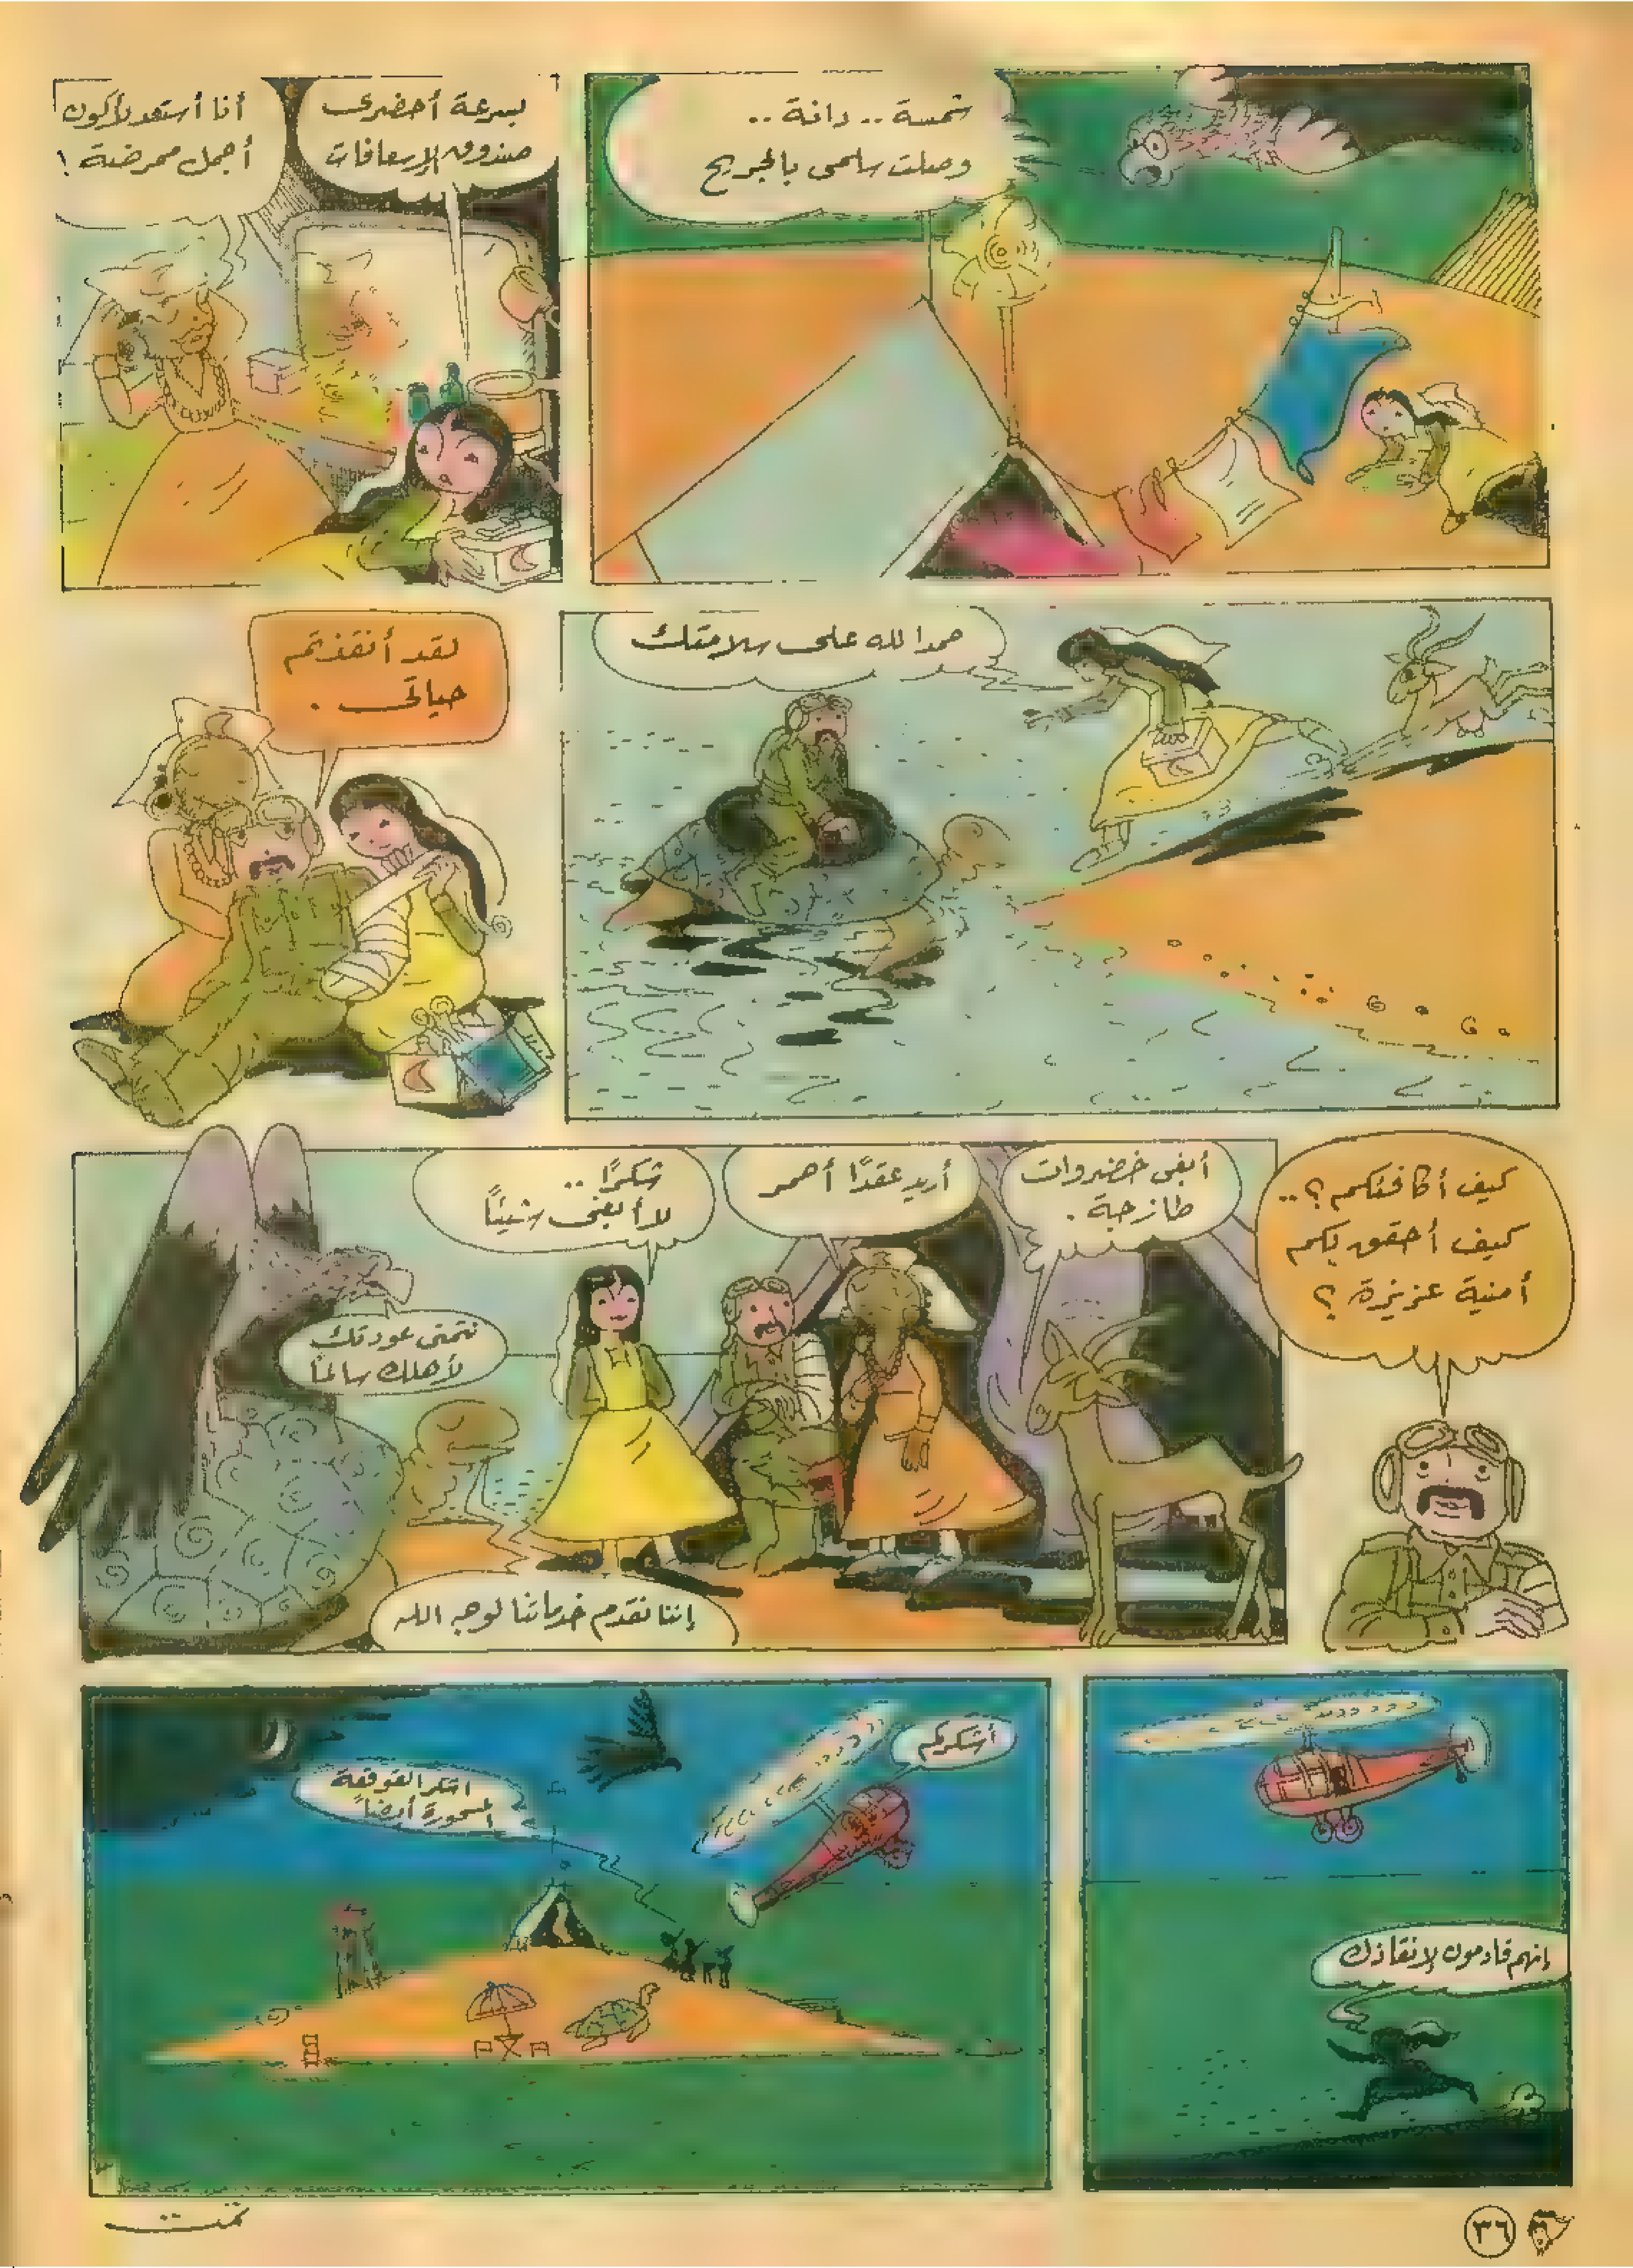 شمسة .. دانة ..
وصلت سلمى بالجريح
بسرعة أحضرى
صندوق الإسعافات
أنا أستعد لأكون
أجمل ممرضة !
حمدا لله على سلامتك
لقد أنقذتم
حياتى .
كيف أكافئكم ؟ ..
كيف أحقق لكم
أمنية عزيزة ؟
أبغى خضروات
طازجة .
أريد عقدًا أحمر
شكرًا ..
لا أبغى شيئًا
نتمنى عودتك
لأهلك سالمًا
إننا نقدم خدماتنا لوجه الله
إنهم قادمون لإنقاذك
أشكركم
اشكر القوقعة
المسحورة أيضًا
تمت
٣٦